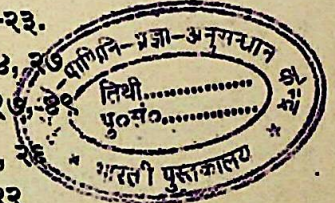 -२३.
२७
पाणिनि-प्रज्ञा-अनुसन्धान केन्द्र
तिथी..................
पु०सं०..................
* भारती पुस्तकालय *